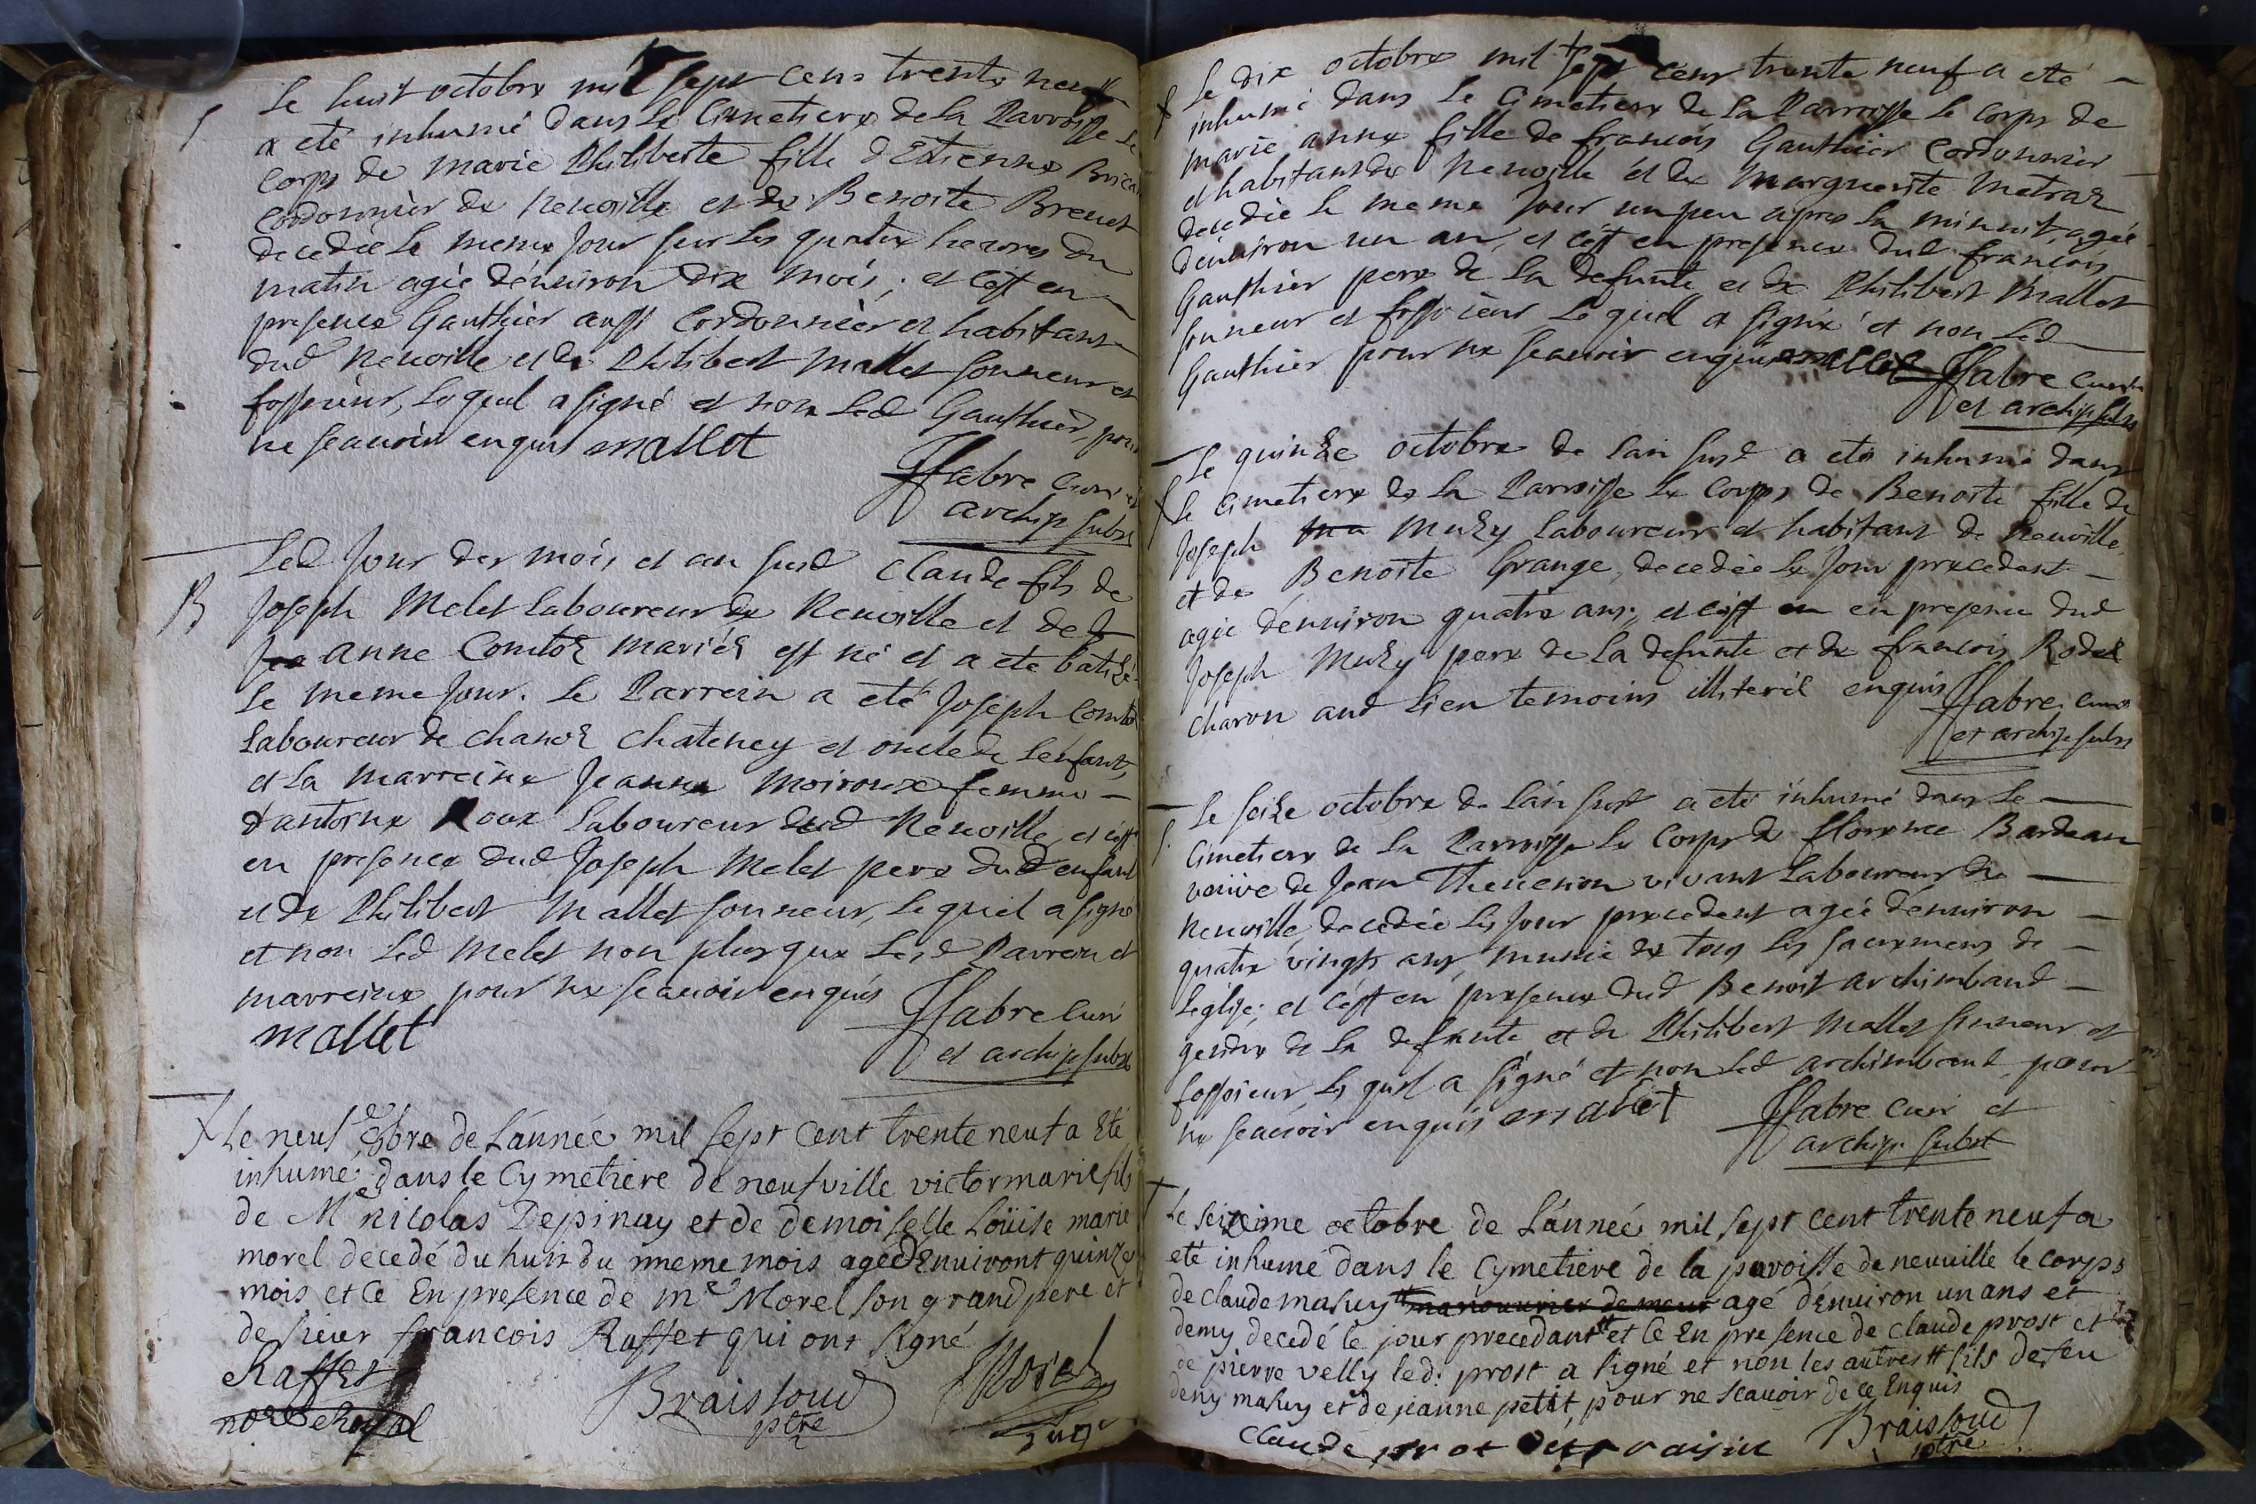 Le huit octobre mil sept cens trente neuf
a eté inhumé dans le Cimetiere de la Parroisse le
corps de marie Philiberte fille d'Etienne
cordonnier de Neuville et de Benoite Brenet
decedée le meme Jour sur les quatre heures du
matin agée dénviron dix mois; et c'est en
presence Gauthier aussi Cordonnier et habitant
dud Neuville et de Philibert Mallet sonneur et
fossoieur, lequel a signé et non led Gauthier, pour
ne scauoir enquis mallet
Ffabre Curé et
archip subst
B
Led Jour des mois et an susd Claude fils de
Joseph Melet laboureur de Neuville et de
Jea anne Comtoz mariés est né et a eté batizé
le meme Jour. Le Parrein a eté Joseph Comtoz
laboureur de chanoz chateney et oncle de l'enfant,
et la marreine Jeanne Moiroux femme
d'antoine Roux laboureur dud Neuville, et c'est
en presence dud Joseph Melet pere dud enfant
et de Philibert Mallet sonneur, lequel a signé
et non led Melet non plus que lesd Parrein et
marreine pour ne scauoir enquis
mallet
Ffabre Curé
et archip subst
Le neuf 8bre de L'année mil sept Cent trente neuf a Eté
inhumé dans le Cymetiere de neufville victor marie fils
de Me nicolas Depinay et de demoiselle Loüise marie
morel decedé du huit du meme mois agée D'Enuiront quinze
mois et Ce En presence de me Morel son grand pere et
de sieur francois Raffet qui ont signé
Raffet
nore Royal
Braissoud
ptre
Morel
Juge
Le dix octobre mil sept cens trente neuf a eté
inhumé dans le Cimetiere de la Parroisse le corps de
marie anne fille de francois Gauthier Cordonnier
et habitant de Neuville et de Marguerite Metraz
decedée le meme Jour un peu apres la minuit, agée
dénviron un an, et c'est en presence dud francois
Gauthier pere de la defunte et de Philibert Mallet
sonneur et fossoieur lequel a signé et non led
Gauthier pour ne scauoir enquis mallet Ffabre curé
et archip subst
Le quinze octobre de l'an susd a eté inhumé dans
le Cimetiere de la Parroisse le Corps de Benoite fille de
Joseph Muzy laboureur et habitant de Neuville,
et de Benoite Grange, decedée le Jour precedent
agée dénviron quatre ans; et c'est en en presence dud
Joseph Muzy pere de la defunte et de francois Rodet
charon aud lieu temoins illiteré enquis Ffabre curé
et archip subst
Le seize octobre de l'an susd a eté inhumé dans le
Cimetiere de la Parroisse le Corps de florence Bardean
veuve de Jean Thenenon vivant laboureur de
Neuville, decedée le Jour precedent agée dénviron
quatre vingts ans, munie de tous les sacremens de
l'église; et c'est en presence dud Benoit archimbaud
gendre de la defunte et de Philibert Mallet sonneur et
fossoieur, lequel a signé et non led archimbaud, pour
ne scauoir enquis mallet Ffabre Curé et
archip. subst
Le seizeime octobre de L'année mil sept cent trente neuf a
eté inhumé dans le Cymetiere de la paroisse de neuuille le corps
de claude masuy manouurier demeur agé d'Enuiron un ans et
demy decedé le jour precedant et Ce En presence de claude prost et
de pierre velly led: prost a signé et non les autres fils de feu
deny masuy et de jeanne petit, pour ne scauoir de ce Enquis
claude prot
Braissoud
ptre